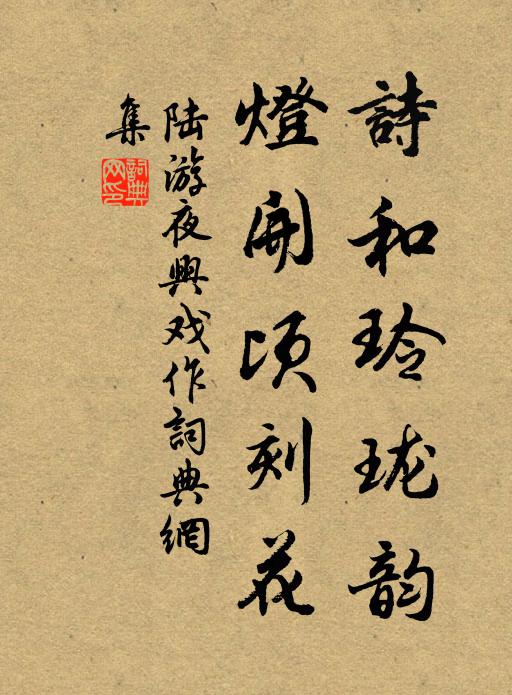 詩和玲瓏韵
燈開頃刻花
陆游夜興戏作詞典網
集
詞典
网印